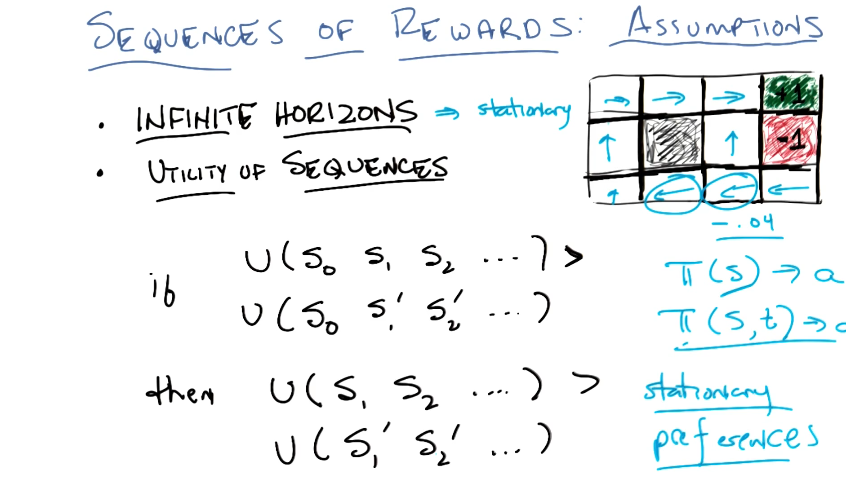 SEQUENCES OF REWARDS: ASSUMPTIONS
• INFINITE HORIZONS ⇒ stationary
• UTILITY OF SEQUENCES
+1
-1
-.04
if U(S₀ S₁ S₂ ...) >
U(S₀ S₁' S₂' ...)
then U(S₁ S₂ ....) >
U(S₁' S₂' ...)
π(s) → a
π(s,t) → a
stationary
preferences